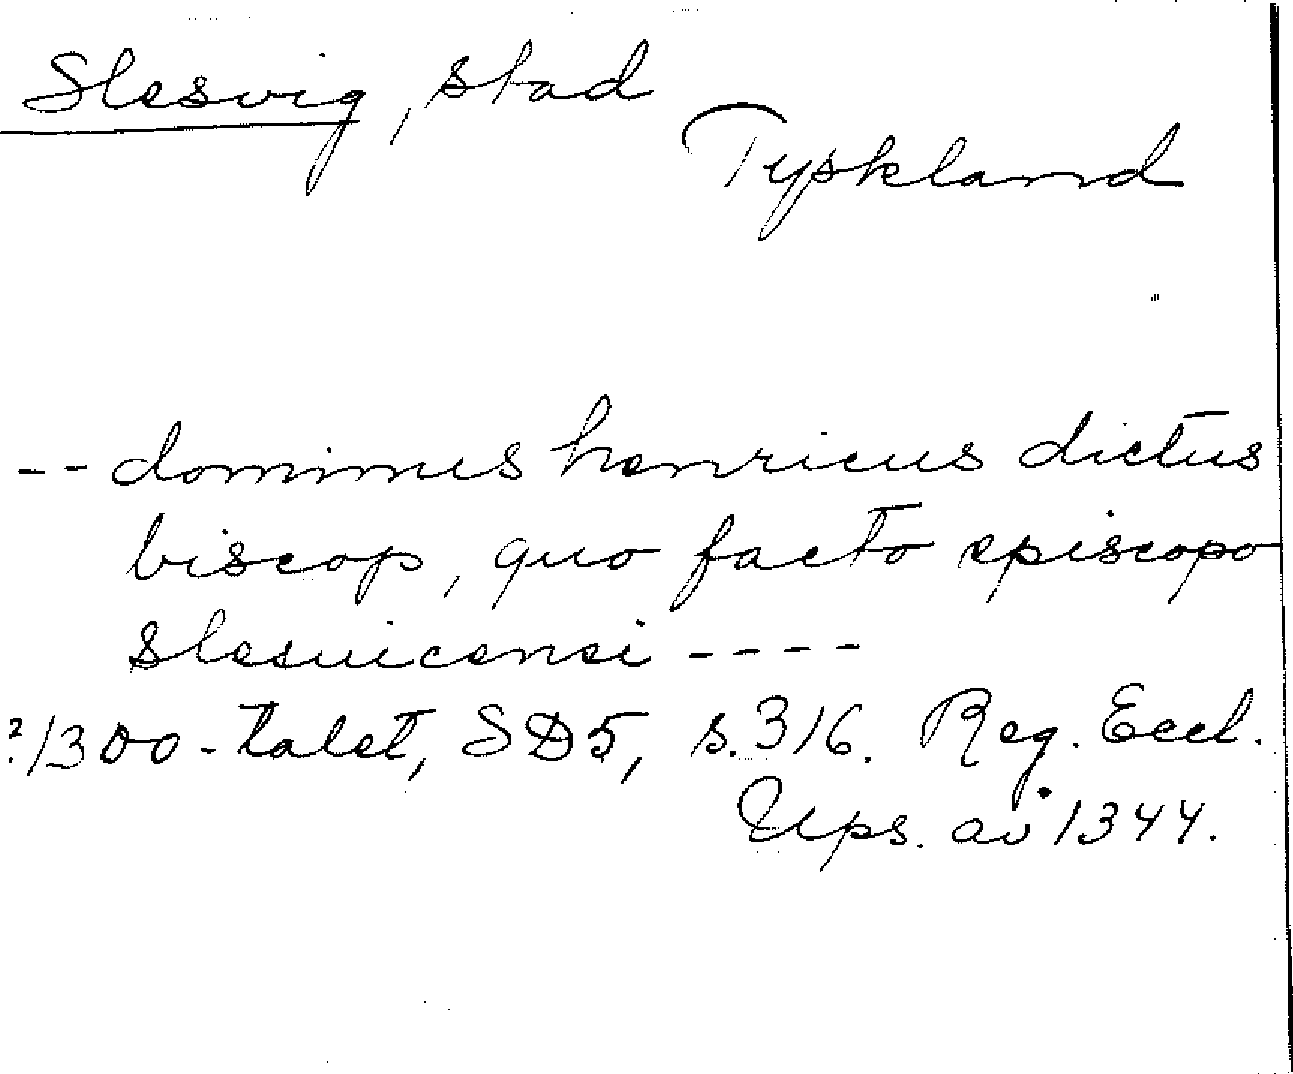 Slesvig, stad
Tyskland
-- dominus henricus dictus
biscop, quo facto episcopo
slesuicensi ----
?1300-talet, SD5, s. 316. Reg. Eccl.
Ups. av 1344.